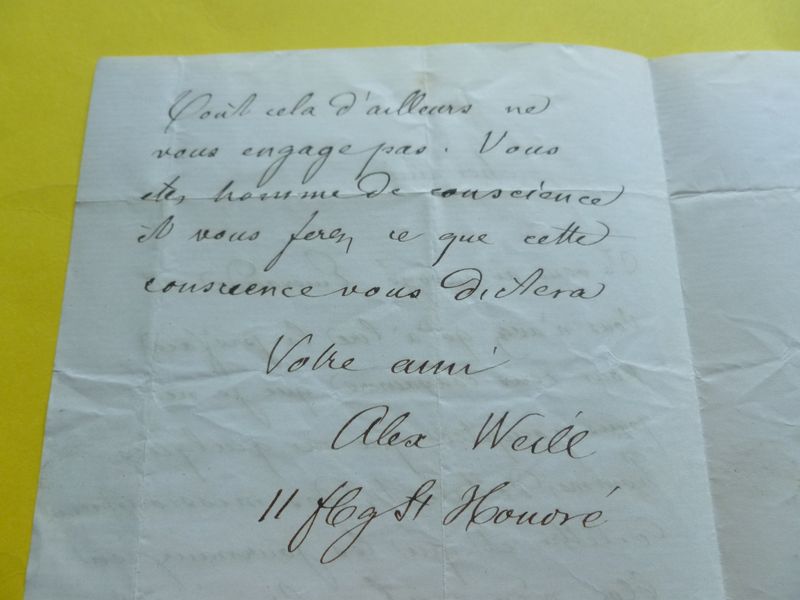 Tout cela d'ailleurs ne
vous engage pas. Vous
êtes homme de conscience
et vous ferez ce que cette
conscience vous dictera
Votre ami
Alex Weill
11 fbg St Honoré